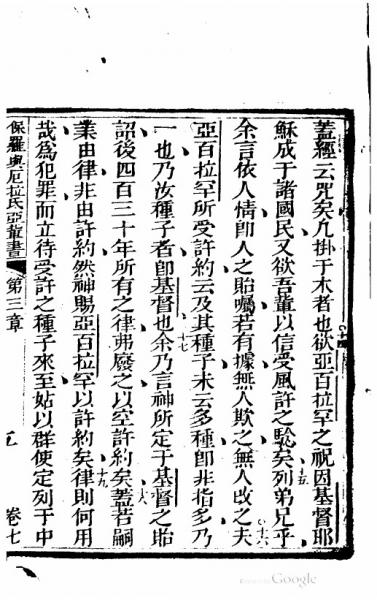 蓋經云咒矣凡掛于木者也欲亞百拉罕之祝因基督耶
穌成于諸國民又欲吾輩以信受風許之騐矣列弟兄乎
余言依人情卽人之貽囑若有據無人欺之無人改之夫
亞百拉罕所受許約云及其種子未云多種卽非指多乃
一也乃汝種子者卽基督也余乃言神所定于基督之貽
詔後四百三十年所有之律弗廢之以空許約矣蓋若嗣
業由律非由許約然神賜亞百拉罕以許約矣律則何用
哉為犯罪而立待受許之種子來至姑以群使定列于中
保羅與厄拉氏亞書 第三章 五 卷七
Google